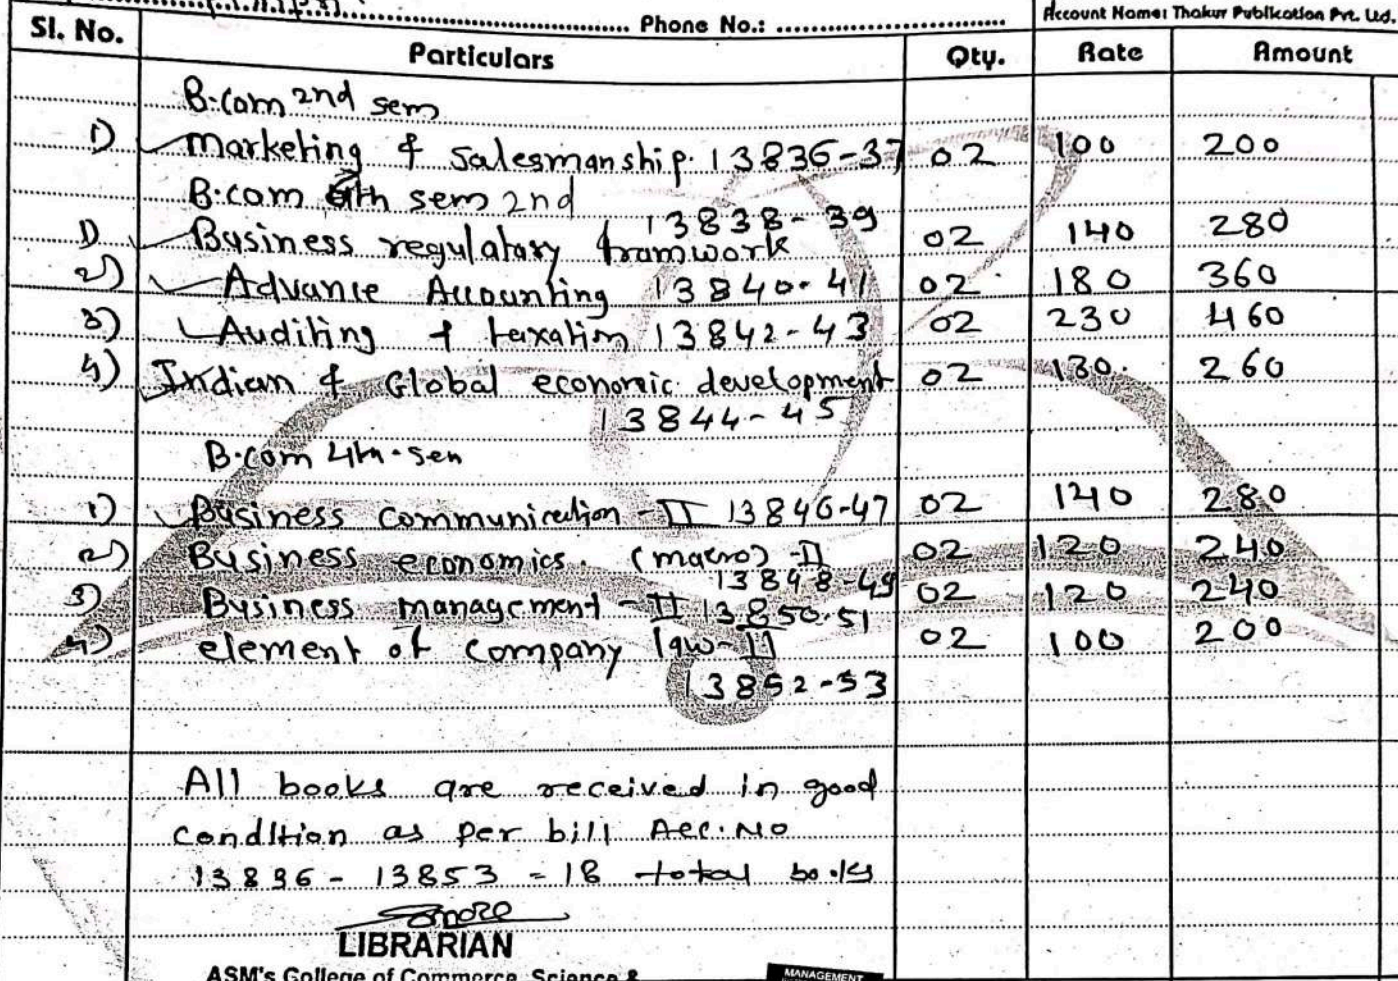 Phone No.: Account Name: Thakur Publication Pvt. Ltd.
Sl. No. Particulars Qty. Rate Amount
B.com 2nd sem
1) Marketing & salesmanship. 13836-37 02 100 200
B.com sem 2nd
13838-39
1) Business regulatary framwork 02 140 280
2) Advance Accounting 13840-41 02 180 360
3) Auditing & taxation 13842-43 02 230 460
4) Indian & Global economic development 02 130. 260
13844-45
B.com 4th sem
1) Business communication - II 13846-47 02 140 280
2) Business economics. (macro) - II 02 120 240
13848-49
3) Business management - II 13850-51 02 120 240
4) element of company law - II 02 100 200
13852-53
All books are received in good
condition as per bill Acc. No
13836 - 13853 = 18 total books
LIBRARIAN
ASM's College of Commerce, Science &
MANAGEMENT